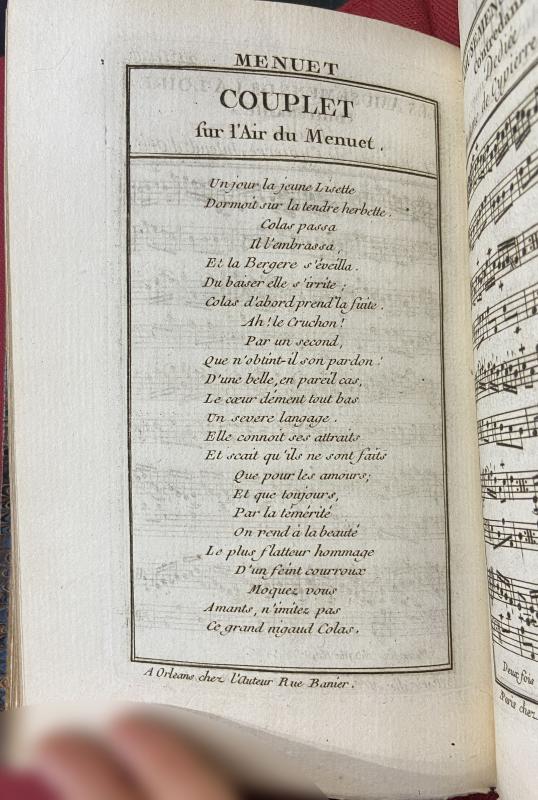 MENUET
COUPLET
sur l'Air du Menuet.
Un jour la jeune Lisette
Dormoit sur la tendre herbette.
Colas passa
Il l'embrassa,
Et la Bergere s'éveilla.
Du baiser elle s'irrite ;
Colas d'abord prend la fuite.
Ah! le Cruchon!
Par un second,
Que n'obtint-il son pardon!
D'une belle, en pareil cas,
Le cœur dément tout bas
Un severe langage.
Elle connoit ses attraits
Et scait qu'ils ne sont faits
Que pour les amours;
Et que toujours,
Par la témérité
On rend à la beauté
Le plus flatteur hommage
D'un feint courroux
Moquez vous
Amants, n'imitez pas
Ce grand nigaud Colas.
A Orleans chez l'Auteur Rue Banier.
Contredan
Dediée
de Cypierre
Deux fois
Paris chez